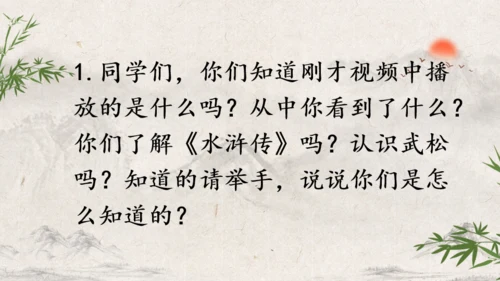 1.同学们，你们知道刚才视频中播
放的是什么吗？从中你看到了什么？
你们了解《水浒传》吗？认识武松
吗？知道的请举手，说说你们是怎
么知道的？